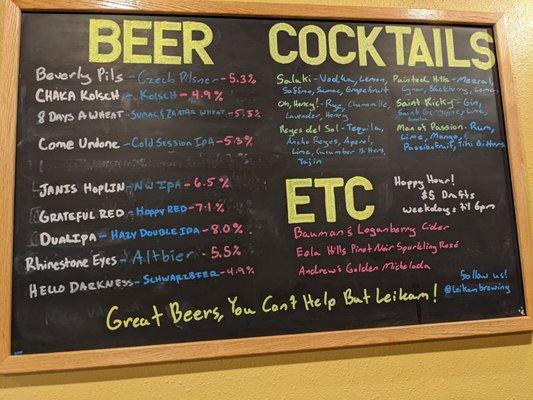 BEER
Beverly Pils - Czech Pilsner - 5.3%
CHAKA KOLSCH - KOLSCH - 4.9%
8 DAYS A WHEAT - SUMAC & ZA'ATAR WHEAT - 5.5%
COME UNDONE - COLD SESSION IPA - 5.3%
JANIS HOPLIN - NW IPA - 6.5%
GRATEFUL RED - HOPPY RED - 7.1%
DUALIPA - HAZY DOUBLE IPA - 8.0%
Rhinestone Eyes - Altbier - 5.5%
HELLO DARKNESS - SCHWARZBIER - 4.9%
COCKTAILS
Salaki - Vodka, Lemon,
Saffino, Sumac, Grapefruit
Oh, Honey! - Rye, Chamomile,
Lavender, Honey
Reyes del Sol - Tequila,
Ancho Reyes, Aperol,
Lime, Cucumber Bitters,
Tajin
Painted Hills - Mezcal,
Cynar, Blackberry, Lemon
Saint Ricky - Gin,
Saint Germaine, Lime,
Man of Passion - Rum,
Lime, Mango,
Passionfruit, Tiki Bitters
ETC
Bauman's Loganberry Cider
Eola Hills Pinot Noir Sparkling Rosé
Andrew's Golden Michelada
Happy Hour!
$5 Drafts
weekdays til 6pm
Follow us!
@leikambrewing
Great Beers, You Can't Help But Leikam!